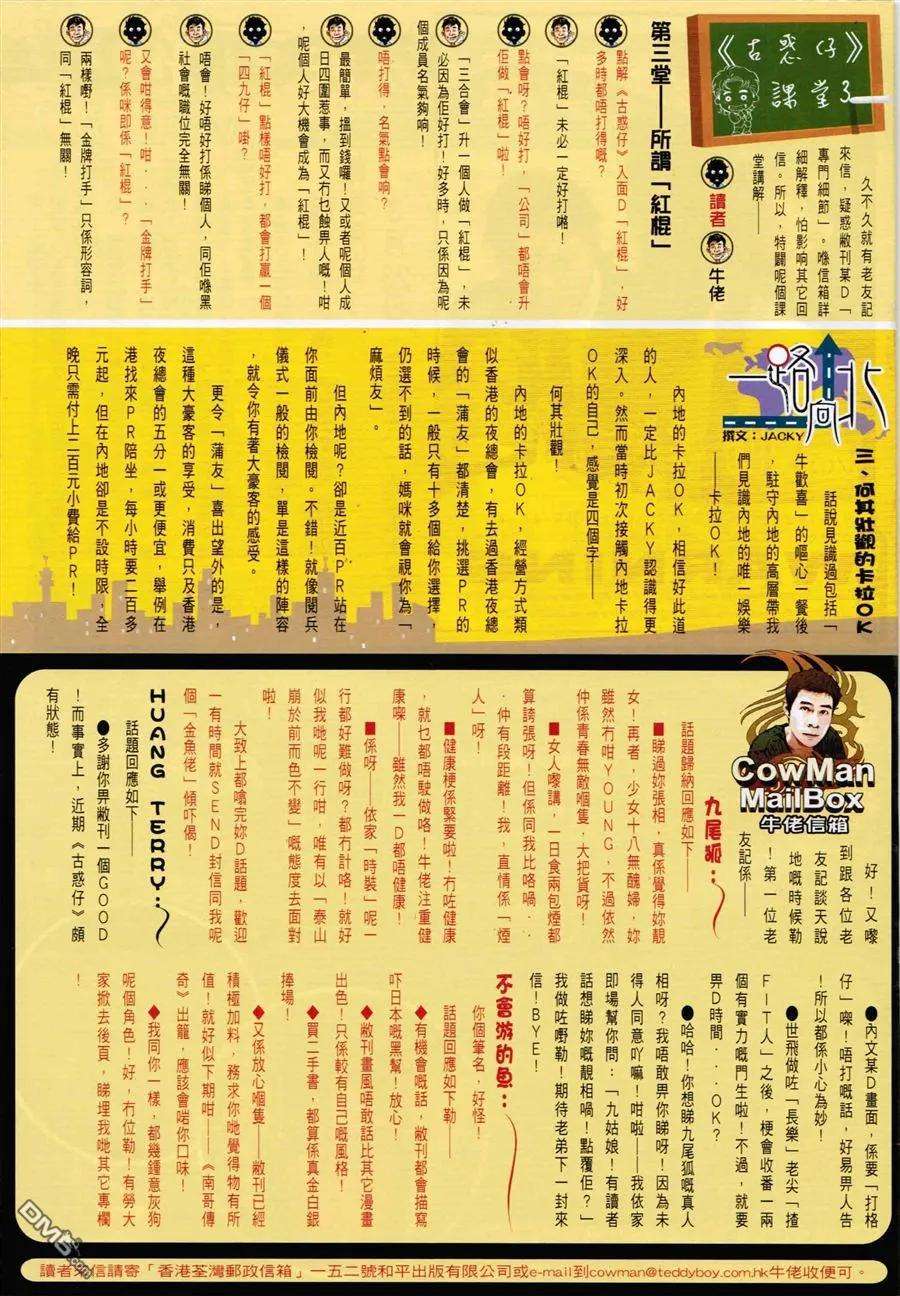 《古惑仔》
課堂3
久不久就有老友記
來信，疑惑敝刊某D「
專門細節」。喺信箱詳
細解釋，怕影响其它回
信。所以，特闢呢個課
堂講解——
讀者
牛佬
第三堂——所謂「紅棍」
點解《古惑仔》入面D「紅棍」，好
多時都唔打得嘅？
「紅棍」未必一定好打嗒！
點會呀？唔好打，「公司」都唔會升
佢做「紅棍」啦！
「三合會」升一個人做「紅棍」，未
必因為佢好打！好多時，只係因為呢
個成員名氣夠响！
唔打得，名氣點會响？
最簡單，搵到錢囉！又或者呢個人成
日四圍惹事，而又冇乜蝕畀人嘅！咁
，呢個人好大機會成為「紅棍」！
「紅棍」點樣唔好打，都會打贏一個
「四九仔」啩？
唔會！好唔好打係睇個人，同佢喺黑
社會嘅職位完全無關！
又會咁得意！咁．．．「金牌打手」
呢？係咪即係「紅棍」？
兩樣嘢！「金牌打手」只係形容詞，
同「紅棍」無關！
一路向北
撰文：JACKY
三、何其壯觀的卡拉OK
話說見識過包括「
牛歡喜」的嘔心一餐後
，駐守內地的高層帶我
們見識內地的唯一娛樂
——卡拉OK！
內地的卡拉OK，相信好此道
的人，一定比JACKY認識得更
深入。然而當時初次接觸內地卡拉
OK的自己，感覺是四個字——
何其壯觀！
內地的卡拉OK，經營方式類
似香港的夜總會，有去過香港夜總
會的「蒲友」都清楚，挑選PR的
時候，一般只有十多個給你選擇，
仍選不到的話，媽咪就會視你為「
麻煩友」。
但內地呢？卻是近百PR站在
你面前由你檢閱。不錯！就像閱兵
儀式一般的檢閱，單是這樣的陣容
，就令你有著大豪客的感受。
更令「蒲友」喜出望外的是，
這種大豪客的享受，消費只及香港
夜總會的五分一或更便宜，舉例在
港找來PR陪坐，每小時要二百多
元起，但在內地卻是不設時限，全
晚只需付上二百元小費給PR！
CowMan
MailBox
牛佬信箱
好！又嚟
到跟各位老
友記談天說
地嘅時候勒
！第一位老
友記係——
九尾狐：
話題歸納回應如下——
■睇過妳張相，真係覺得妳靚
女！再者，少女十八無醜婦，妳
雖然冇咁YOUNG，不過依然
仲係青春無敵嗰隻．大把貨呀！
■女人嚟講，一日食兩包煙都
算誇張呀！但係同我比咯喎．
．仲有段距離！我，直情係「煙
人」呀！
■健康梗係緊要啦！冇咗健康
，就乜都唔駛做咯！牛佬注重健
康㗎——雖然我一D都唔健康！
■係呀——依家「時裝」呢一
行都好難做呀？都冇計咯！就好
似我哋呢一行咁，唯有以「泰山
崩於前而色不變」嘅態度去面對
啦！
大致上都噏完妳D話題，歡迎
一有時間就SEND封信同我呢
個「金魚佬」傾吓偈！
HUANG TERRY：
話題回應如下——
●多謝你畀敝刊一個GOOD
！而事實上，近期《古惑仔》頗
有狀態！
●內文某D畫面，係要「打格
仔」㗎！唔打嘅話，好易畀人告
！所以都係小心為妙！
●世飛做咗「長樂」老尖「揸
FIT人」之後，梗會收番一兩
個有實力嘅門生啦！不過，就要
畀D時間．．．OK？
●哈哈！你想睇九尾狐嘅真人
相呀？我唔敢畀你睇呀！因為未
得人同意吖嘛！咁啦——我依家
即場幫你問：「九姑娘！有讀者
話想睇妳嘅靚相喎！點覆佢？」
我做咗嘢勒！期待老弟下一封來
信！BYE！
不會游的魚：
你個筆名，好怪！
話題回應如下勒——
◆有機會嘅話，敝刊都會描寫
吓日本嘅黑幫！放心！
◆敝刊畫風唔敢話比其它漫畫
出色！只係較有自己嘅風格！
◆買二手書，都算係真金白銀
捧場！
◆又係放心嗰隻——敝刊已經
積極加料，務求你哋覺得物有所
值！就好似下期咁——《南哥傳
奇》出籠，應該會啱你口味！
◆我同你一樣，都幾鍾意灰狗
呢個角色！好，冇位勒！有勞大
家掀去後頁，睇埋我哋其它專欄
！
讀者來信請寄「香港荃灣郵政信箱」一五二號和平出版有限公司或e-mail到cowman@teddyboy.com.hk牛佬收便可。